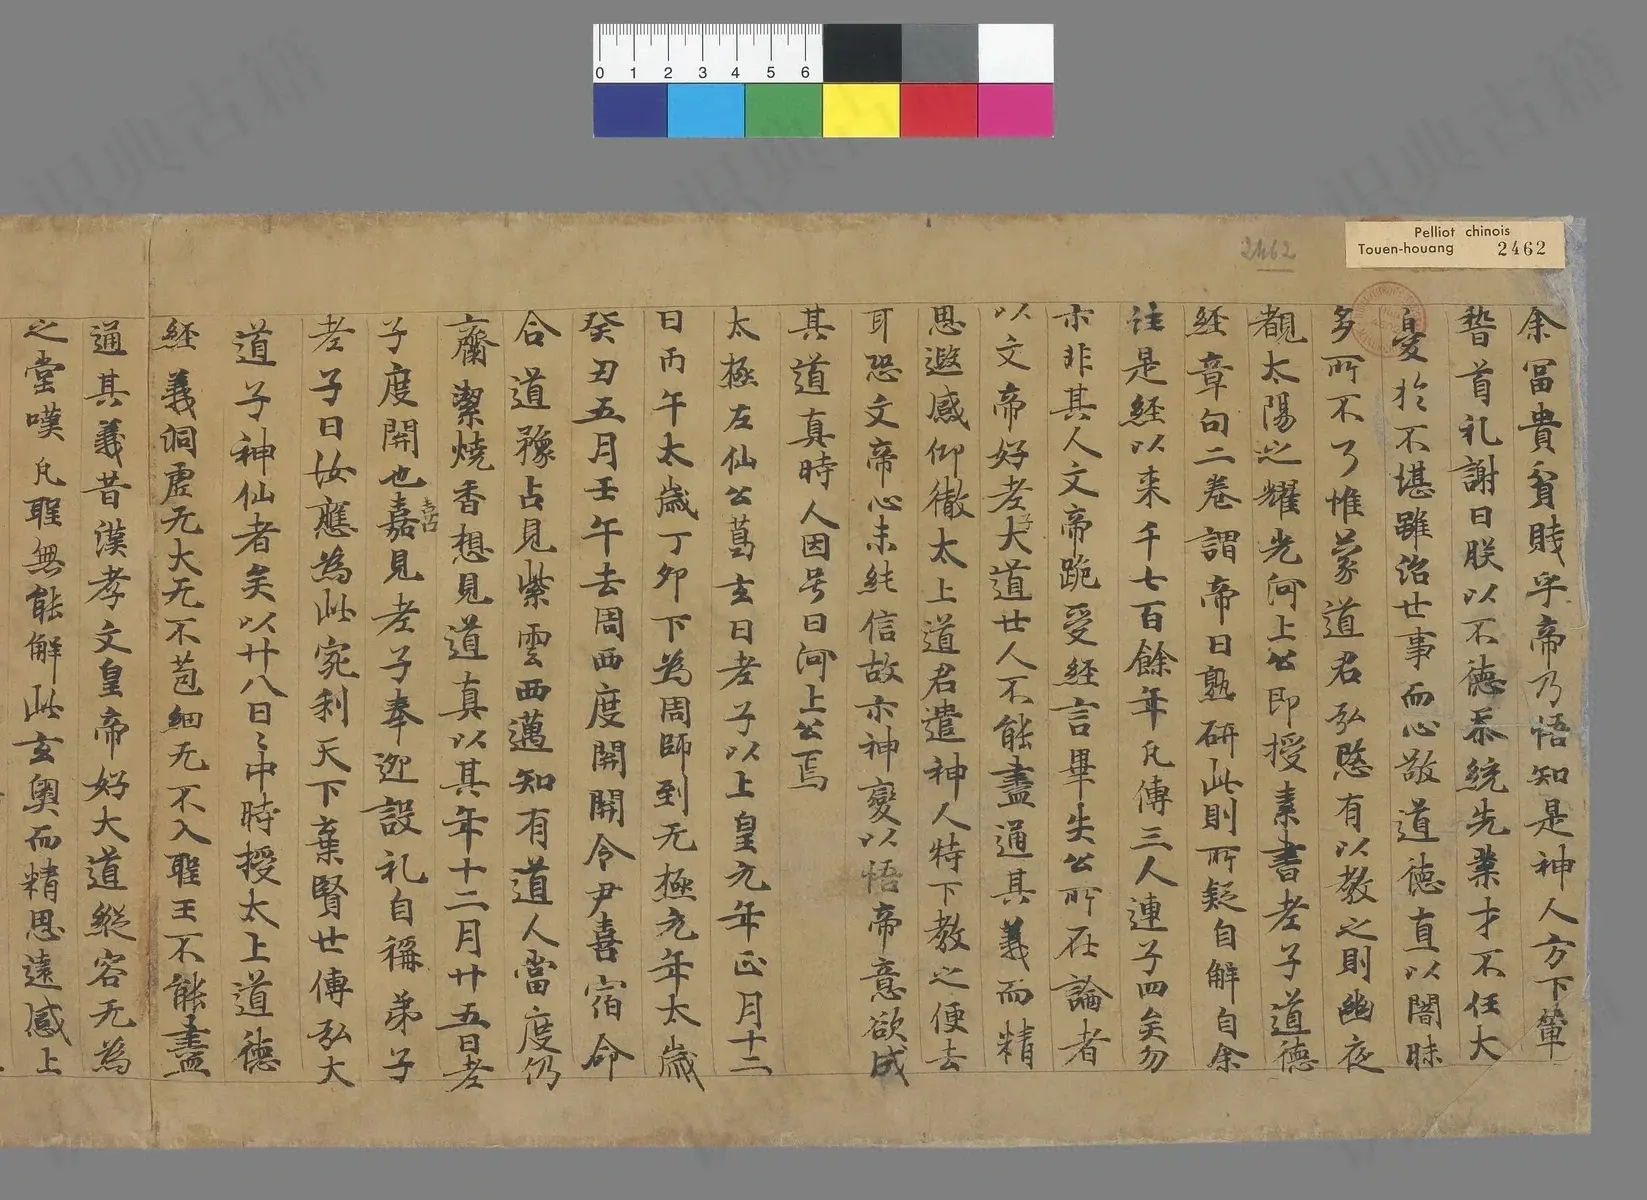 Pelliot chinois
Touen-houang 2462
2462
0 1 2 3 4 5 6
余冨貴貧賤乎帝乃悟知是神人方下輦
稽首礼謝曰朕以不德忝統先業才不任大
憂於不堪雖治世事而心敬道德直以闇昧
多所不了惟蒙道君弘愍有以教之則幽夜
覩太陽之耀光河上公即授素書老子道德
経章句二卷謂帝曰熟研此則所疑自解自余
注是経以来千七百餘年凡傳三人連子四矣勿
示非其人文帝跪受経言畢失公所在論者
以文帝好老大道世人不能盡通其義而精
思遐感仰徹太上道君遣神人特下教之便去
耳恐文帝心未純信故示神變以悟帝意欲成
其道真時人因号曰河上公焉
太極左仙公葛玄曰老子以上皇元年正月十二
日丙午太歲丁卯下為周師到无極元年太歲
癸丑五月壬午去周西度關關令尹喜宿命
合道豫占見紫雲西邁知有道人當度仍
齋潔燒香想見道真以其年十二月廿五日老
子度關也嘉見老子奉迎設礼自稱弟子
喜
老子曰汝應為此宛利天下棄賢世傳弘大
道子神仙者矣以廿八日〻中時授太上道德
経義洞虛无大无不苞細无不入聖王不能盡
通其義昔漢孝文皇帝好大道縱容无為
之堂嘆凡聖無能解此玄奧而精思遠感上